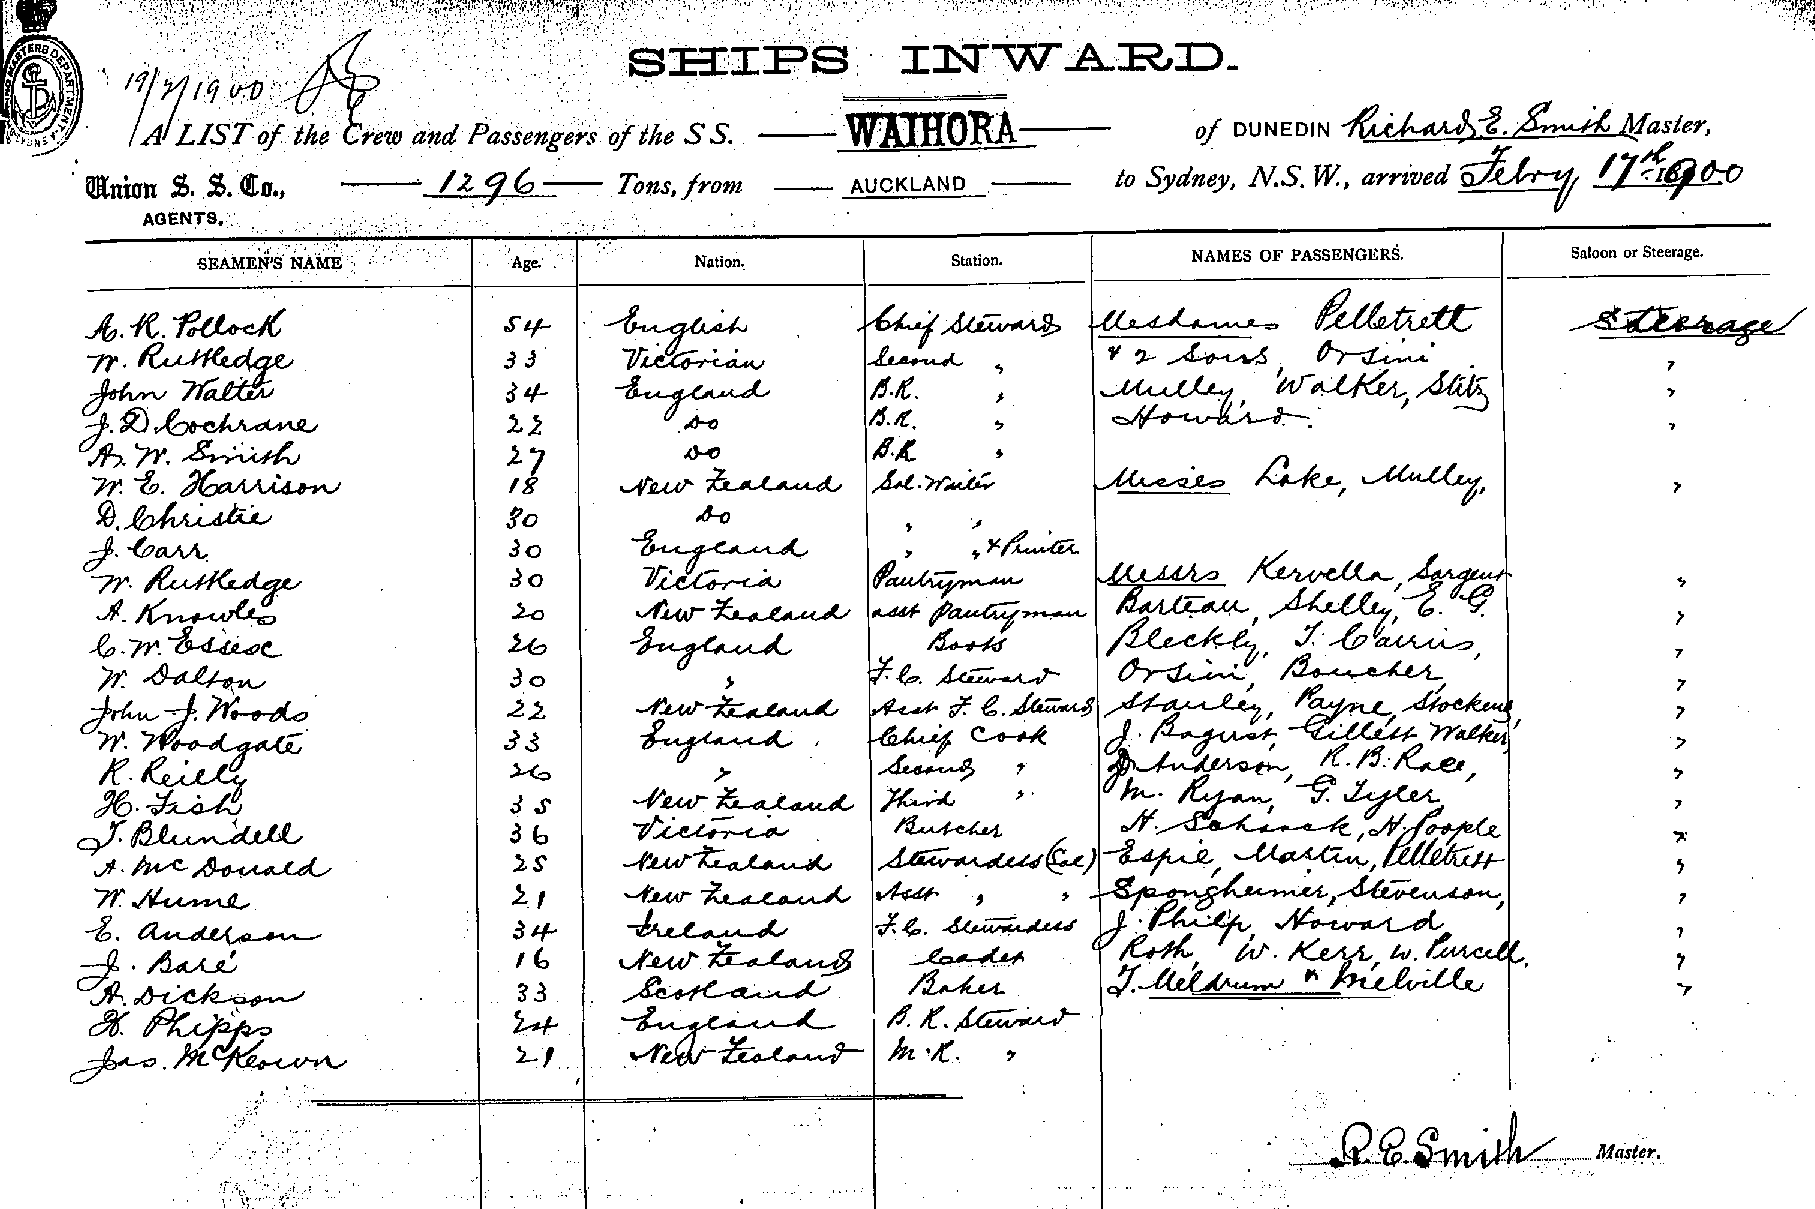 SHIPS INWARD.
19/2/1900
A LIST of the Crew and Passengers of the S S. WAIHORA of DUNEDIN Richard E. Smith Master,
Union S. S. Co., 1296 Tons, from AUCKLAND to Sydney, N.S.W., arrived Febry 17th 1900
AGENTS.
SEAMEN'S NAME Age. Nation. Station. NAMES OF PASSENGERS. Saloon or Steerage.
A. R. Pollock 54 English Chief Steward Mesdames Pelletrett Steerage
W. Rutledge 33 Victorian Second " & 2 Sons, Orsini "
John Walter 34 England B.R. " Mulley, Walker, Stitz "
J. D. Cochrane 22 Do B.R. " Howard. "
A. W. Smith 27 Do B.R "
W. E. Harrison 18 New Zealand Sal. Waiter Misses Lake, Mulley, "
D. Christie 30 Do " "
J. Carr 30 England " " & Printer
W. Rutledge 30 Victoria Pantryman Messrs Kervella, Sargent "
A. Knowles 20 New Zealand asst Pantryman Barteau, Shelley, E. G. "
C. W. Essex 26 England Boots Bleckly, T. Cairns, "
W. Dalton 30 " F. C. Steward Orsini, Boucher, "
John J. Woods 22 New Zealand Asst F. C. Steward Stanley, Payne, Stockens, "
W. Woodgate 33 England Chief Cook J. Bagust, Gillett Walker, "
R. Reilly 26 " Second " J. Anderson, R. B. Race, "
H. Fish 35 New Zealand Third " M. Ryan, G. Tyler "
T. Blundell 36 Victoria Butcher H. Schanck, H. Poople "
A. McDonald 25 New Zealand Stewardess (Sal) Espie, Martin, Pelletrett "
W. Hume 21 New Zealand Asst " " Spongheimer, Stevenson, "
E. Anderson 34 Ireland F. C. Stewardess J. Philp, Howard "
J. Baré 16 New Zealand Cadet Roth, W. Kerr, W. Purcell. "
A. Dickson 33 Scotland Baker T. Meldrum & Melville "
H. Phipps 24 England B. R. Steward
Jas. McKeown 21 New Zealand M. R. "
R. E. Smith Master.